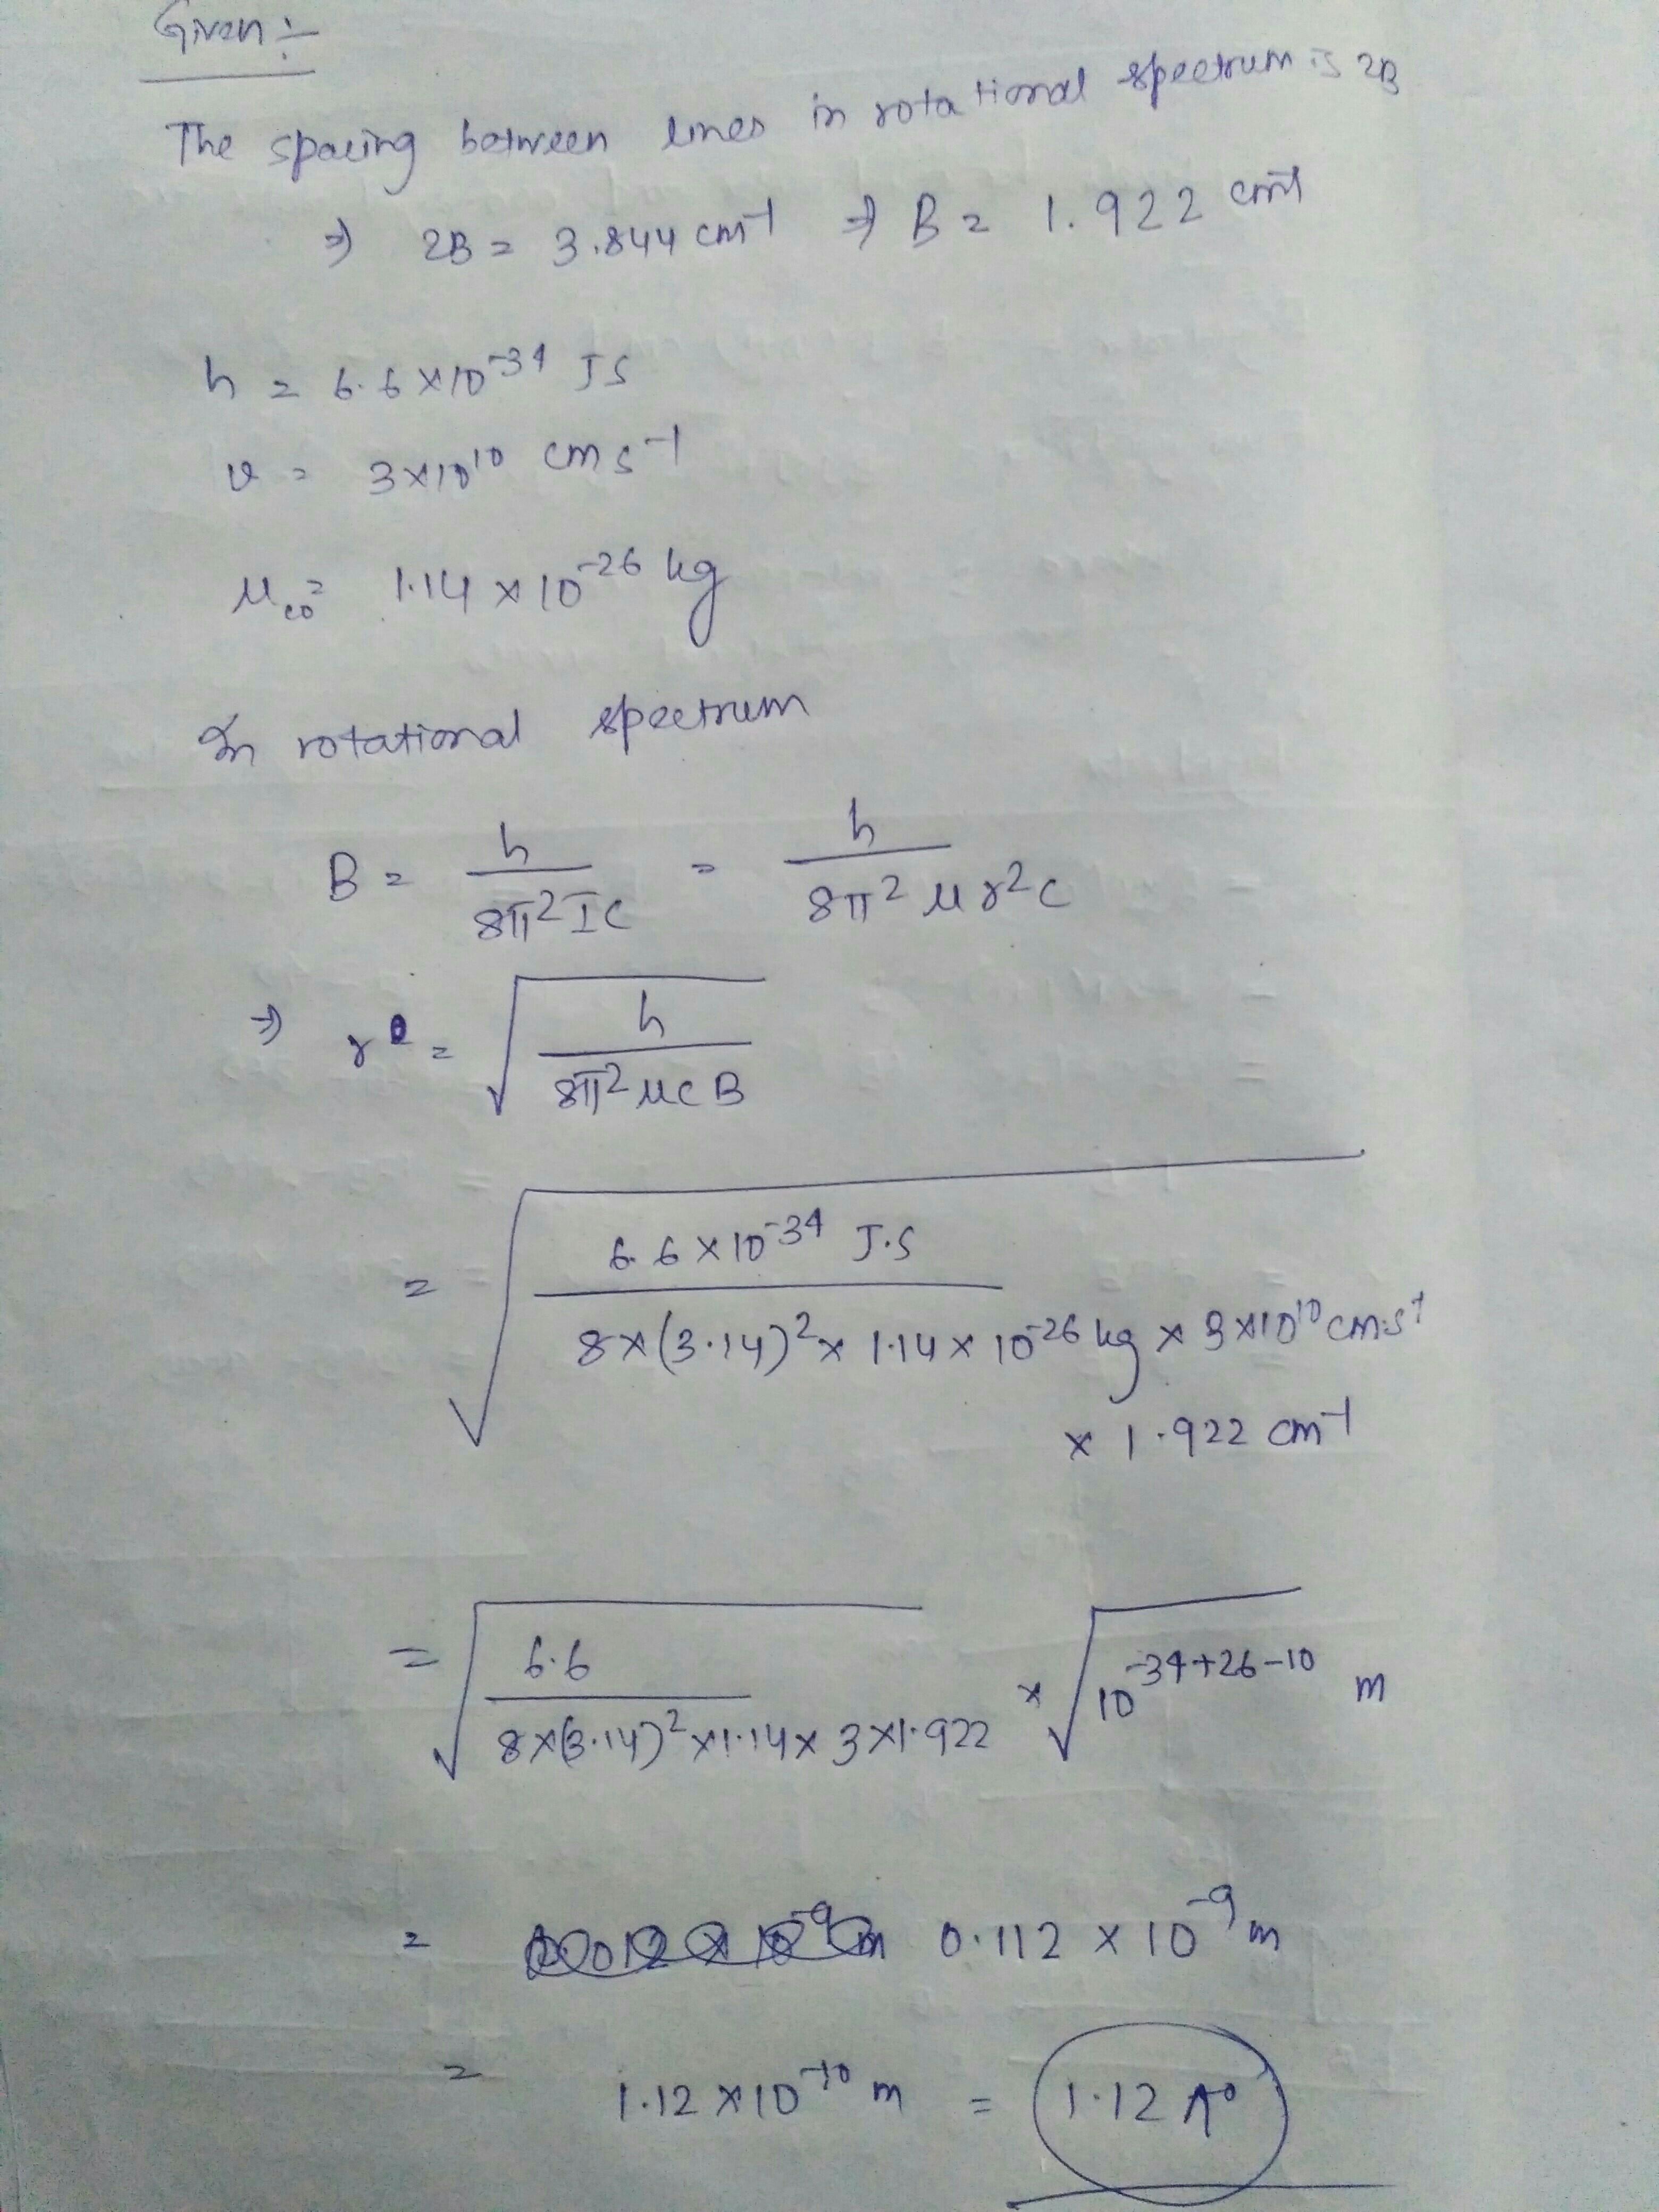 Given :-
The spacing between lines in rotational spectrum is 2B
⇒ 2B = 3.844 cm⁻¹ ⇒ B = 1.922 cm⁻¹
h = 6.6 × 10⁻³⁴ JS
v = 3×10¹⁰ cm s⁻¹
μ_CO = 1.14 × 10⁻²⁶ kg
In rotational spectrum
B = h / 8π²IC = h / 8π²μr²C
⇒ r = √(h / 8π²μCB)
= √(6.6 × 10⁻³⁴ J.S / 8×(3.14)² × 1.14 × 10⁻²⁶ kg × 3×10¹⁰ cm.s⁻¹
× 1.922 cm⁻¹)
= √(6.6 / 8×(3.14)²×1.14×3×1.922) × √(10⁻³⁴⁺²⁶⁻¹⁰) m
= 0.112 × 10⁻⁹ m
= 1.12 × 10⁻¹⁰ m = 1.12 A°